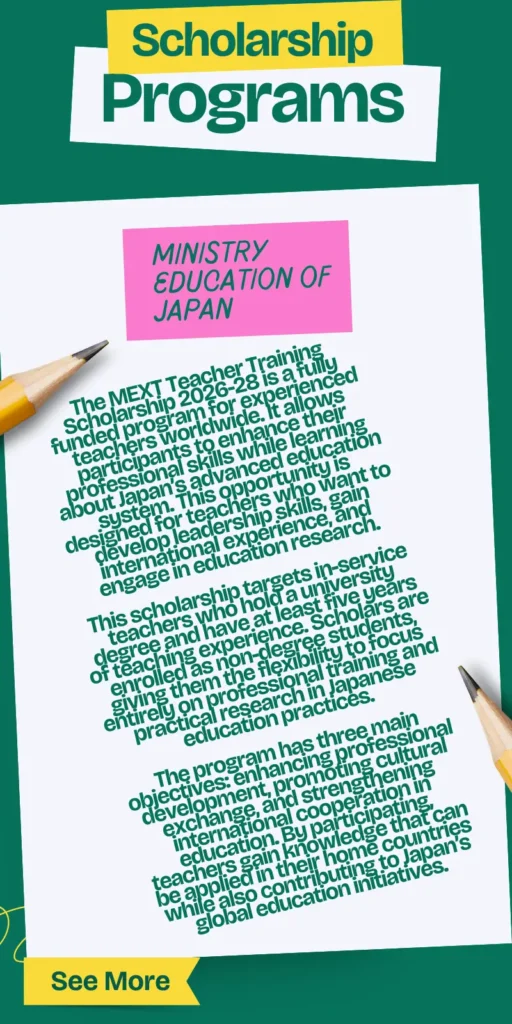 Scholarship
Programs
MINISTRY
EDUCATION OF
JAPAN
The MEXT Teacher Training
Scholarship 2026-28 is a fully
funded program for experienced
teachers worldwide. It allows
participants to enhance their
professional skills while learning
about Japan's advanced education
system. This opportunity is
designed for teachers who want to
develop leadership skills, gain
international experience, and
engage in education research.
This scholarship targets in-service
teachers who hold a university
degree and have at least five years
of teaching experience. Scholars are
enrolled as non-degree students,
giving them the flexibility to focus
entirely on professional training and
practical research in Japanese
education practices.
The program has three main
objectives: enhancing professional
development, promoting cultural
exchange, and strengthening
international cooperation in
education. By participating,
teachers gain knowledge that can
be applied in their home countries
while also contributing to Japan's
global education initiatives.
See More